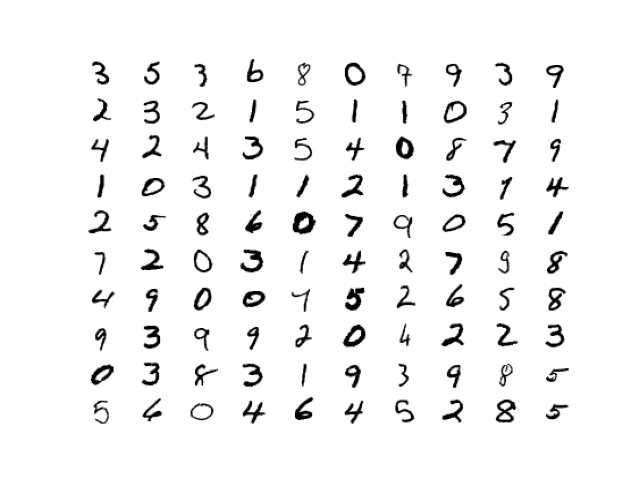 3 5 3 6 8 0 7 9 3 9
2 3 2 1 5 1 1 0 3 1
4 2 4 3 5 4 0 8 7 9
1 0 3 1 1 2 1 3 7 4
2 5 8 6 0 7 9 0 5 1
7 2 0 3 1 4 2 7 9 8
4 9 0 0 7 5 2 6 5 8
9 3 9 9 2 0 4 2 2 3
0 3 8 3 1 9 3 9 8 5
5 6 0 4 6 4 5 2 8 5